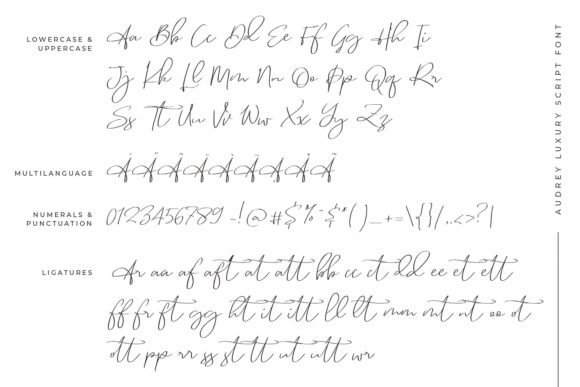 LOWERCASE &
UPPERCASE
Aa Bb Cc Dd Ee Ff Gg Hh Ii
Jj Kk Ll Mm Nn Oo Pp Qq Rr
Ss Tt Uu Vv Ww Xx Yy Zz
MULTILANGUAGE
NUMERALS &
PUNCTUATION
0123456789
LIGATURES
Ar aa af aft at att bb cc ct dd ee et ett
ff fr ft gg ht it itt ll lt mm mt nt oo ot
ott pp rr ss st tt ut utt wr
AUDREY LUXURY SCRIPT FONT